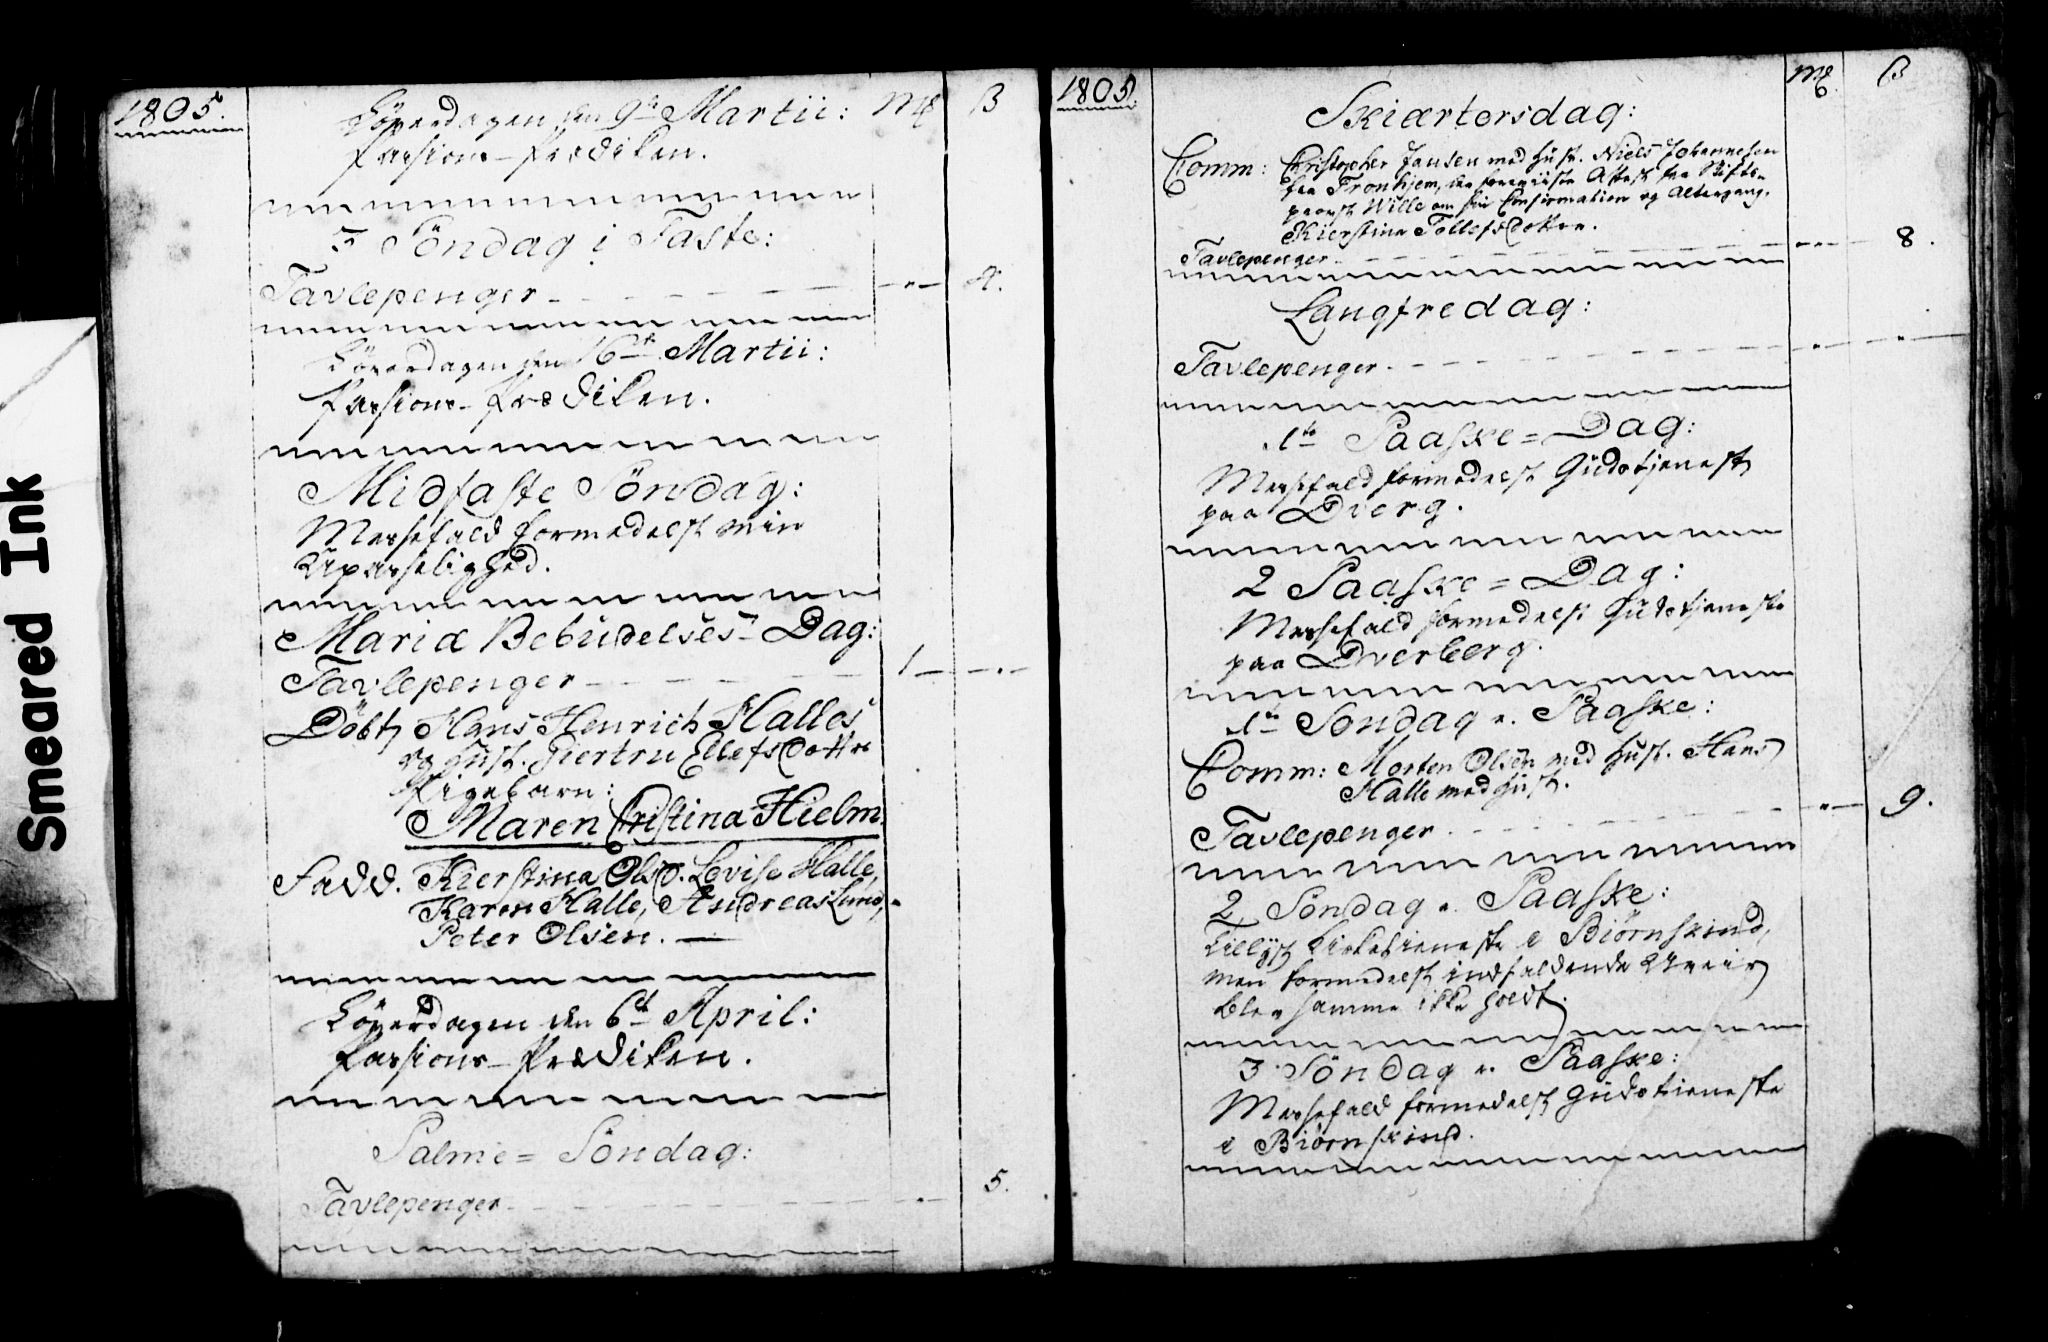 Smeared Ink
1805. Löverdagen den 9de Martii: Mk ß
Passions-Prædiken.
3 Söndag i Faste:
Tavlepenger - - - - - - " - 4.
Löverdagen den 16de Martii:
Passions-Prædiken.
Midfaste Söndag:
Messefald formedelst min
Upasselighed.
Mariæ Bebudelses-Dag:
Tavlepenger - - - - - - 1 - - " -
Döbt Hans Henrich Halles
og Hust. Giertru Ellefs Datters
Pigebarn:
Maren Christina Hielm.
Fadd. Kierstina Olsd. Lovise Halle,
Karen Halle, Andreas Lund,
Peter Olsen. —
Löverdagen den 6te April:
Passions-Prædiken.
Palme= Söndag:
Tavlepenger - - - - - - " - 5.
1805. Mk. ß
Skiærtorsdag:
Comm: Christopher Jansen med Hust. Niels Johannesen
fra Tronhjem, der foreviiste Attest fra Stifts-
provst Wille om sin Confirmation og Altergang.
Kierstina Tollefs Datter.
Tavlepenger - - - - - - " - 8.
Langfredag:
Tavlepenger - - - - - - " - - " -
1te Paaske=Dag:
Messefald formedelst Gudstieneste
paa Dverg.
2 Paaske=Dag:
Messefald formedelst Gudstieneste
paa Dverberg.
1te Söndag e. Paaske:
Comm: Morten Olsen med Hust. Hans
Halle med Hust.
Tavlepenger - - - - - - " - 9.
2 Söndag e. Paaske:
Tillyst Kirketieneste i Biörnskind,
men formedelst indfaldende Uveir
blev samme ikke holdt.
3 Söndag e. Paaske:
Messefald formedelst Gudstieneste
i Biörnskind.